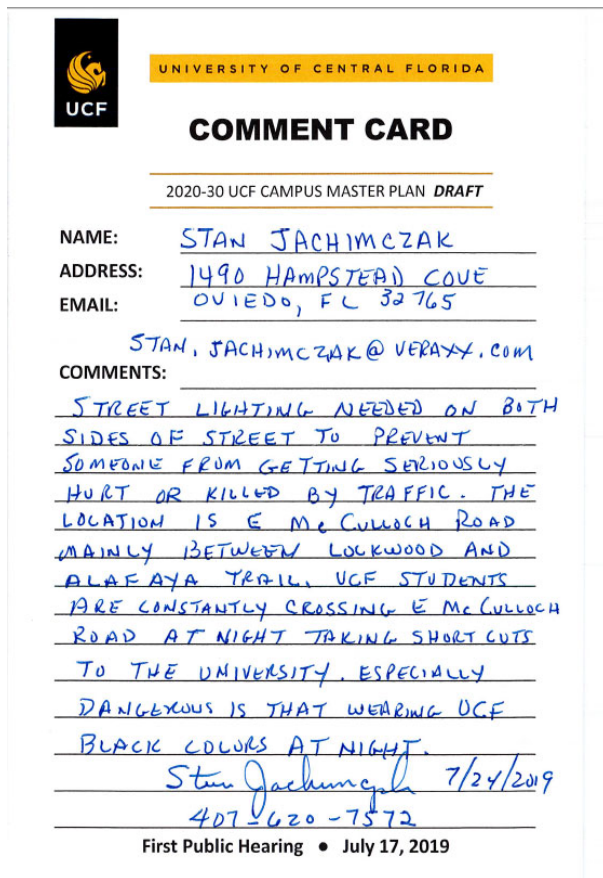 UCF
UNIVERSITY OF CENTRAL FLORIDA
COMMENT CARD
2020-30 UCF CAMPUS MASTER PLAN DRAFT
NAME: STAN JACHIMCZAK
ADDRESS: 1490 HAMPSTEAD COVE
EMAIL: OVIEDO, FL 32765
STAN.JACHIMCZAK@VERAXX.COM
COMMENTS:
STREET LIGHTING NEEDED ON BOTH
SIDES OF STREET TO PREVENT
SOMEONE FROM GETTING SERIOUSLY
HURT OR KILLED BY TRAFFIC. THE
LOCATION IS E McCULLOCH ROAD
MAINLY BETWEEN LOCKWOOD AND
ALAFAYA TRAIL. UCF STUDENTS
ARE CONSTANTLY CROSSING E McCULLOCH
ROAD AT NIGHT TAKING SHORT CUTS
TO THE UNIVERSITY. ESPECIALLY
DANGEROUS IS THAT WEARING UCF
BLACK COLORS AT NIGHT.
Stan Jachimczak 7/24/2019
407-620-7572
First Public Hearing • July 17, 2019